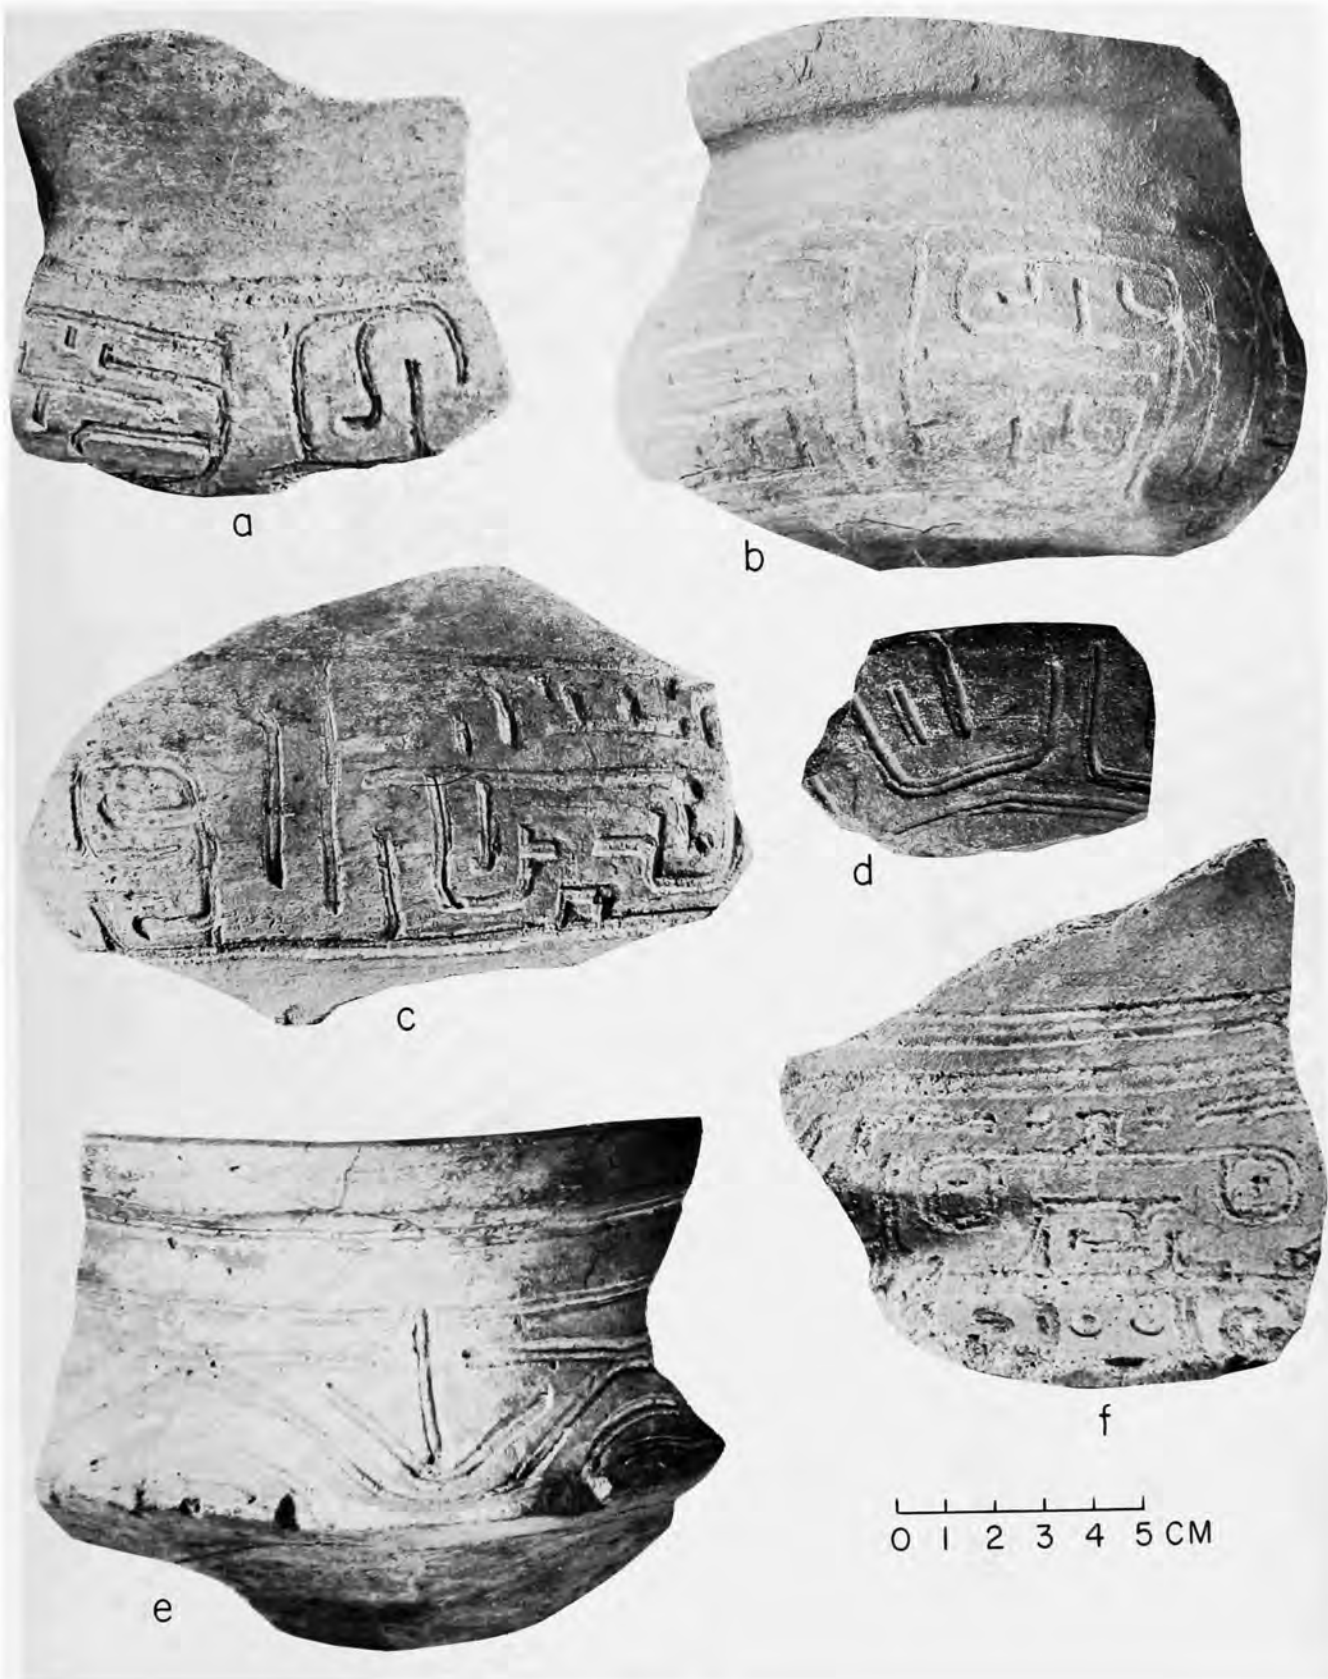 a
b
c
d
e
f
0 1 2 3 4 5 CM